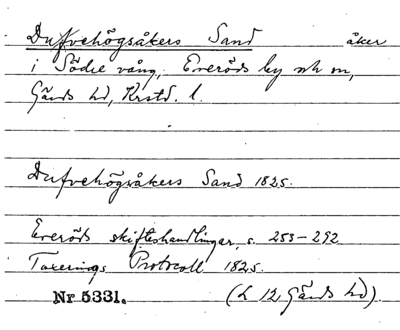 Dufvehögsåkers Sand åker
i Södre vång, Everöds by och sn,
Gärds hd, Krstd. l.
Dufvehögsåkers Sand 1825.
Everöds skifteshandlingar s. 253-292
Taxerings Protocoll 1825.
Nr 5331. (L 12, Gärds hd).